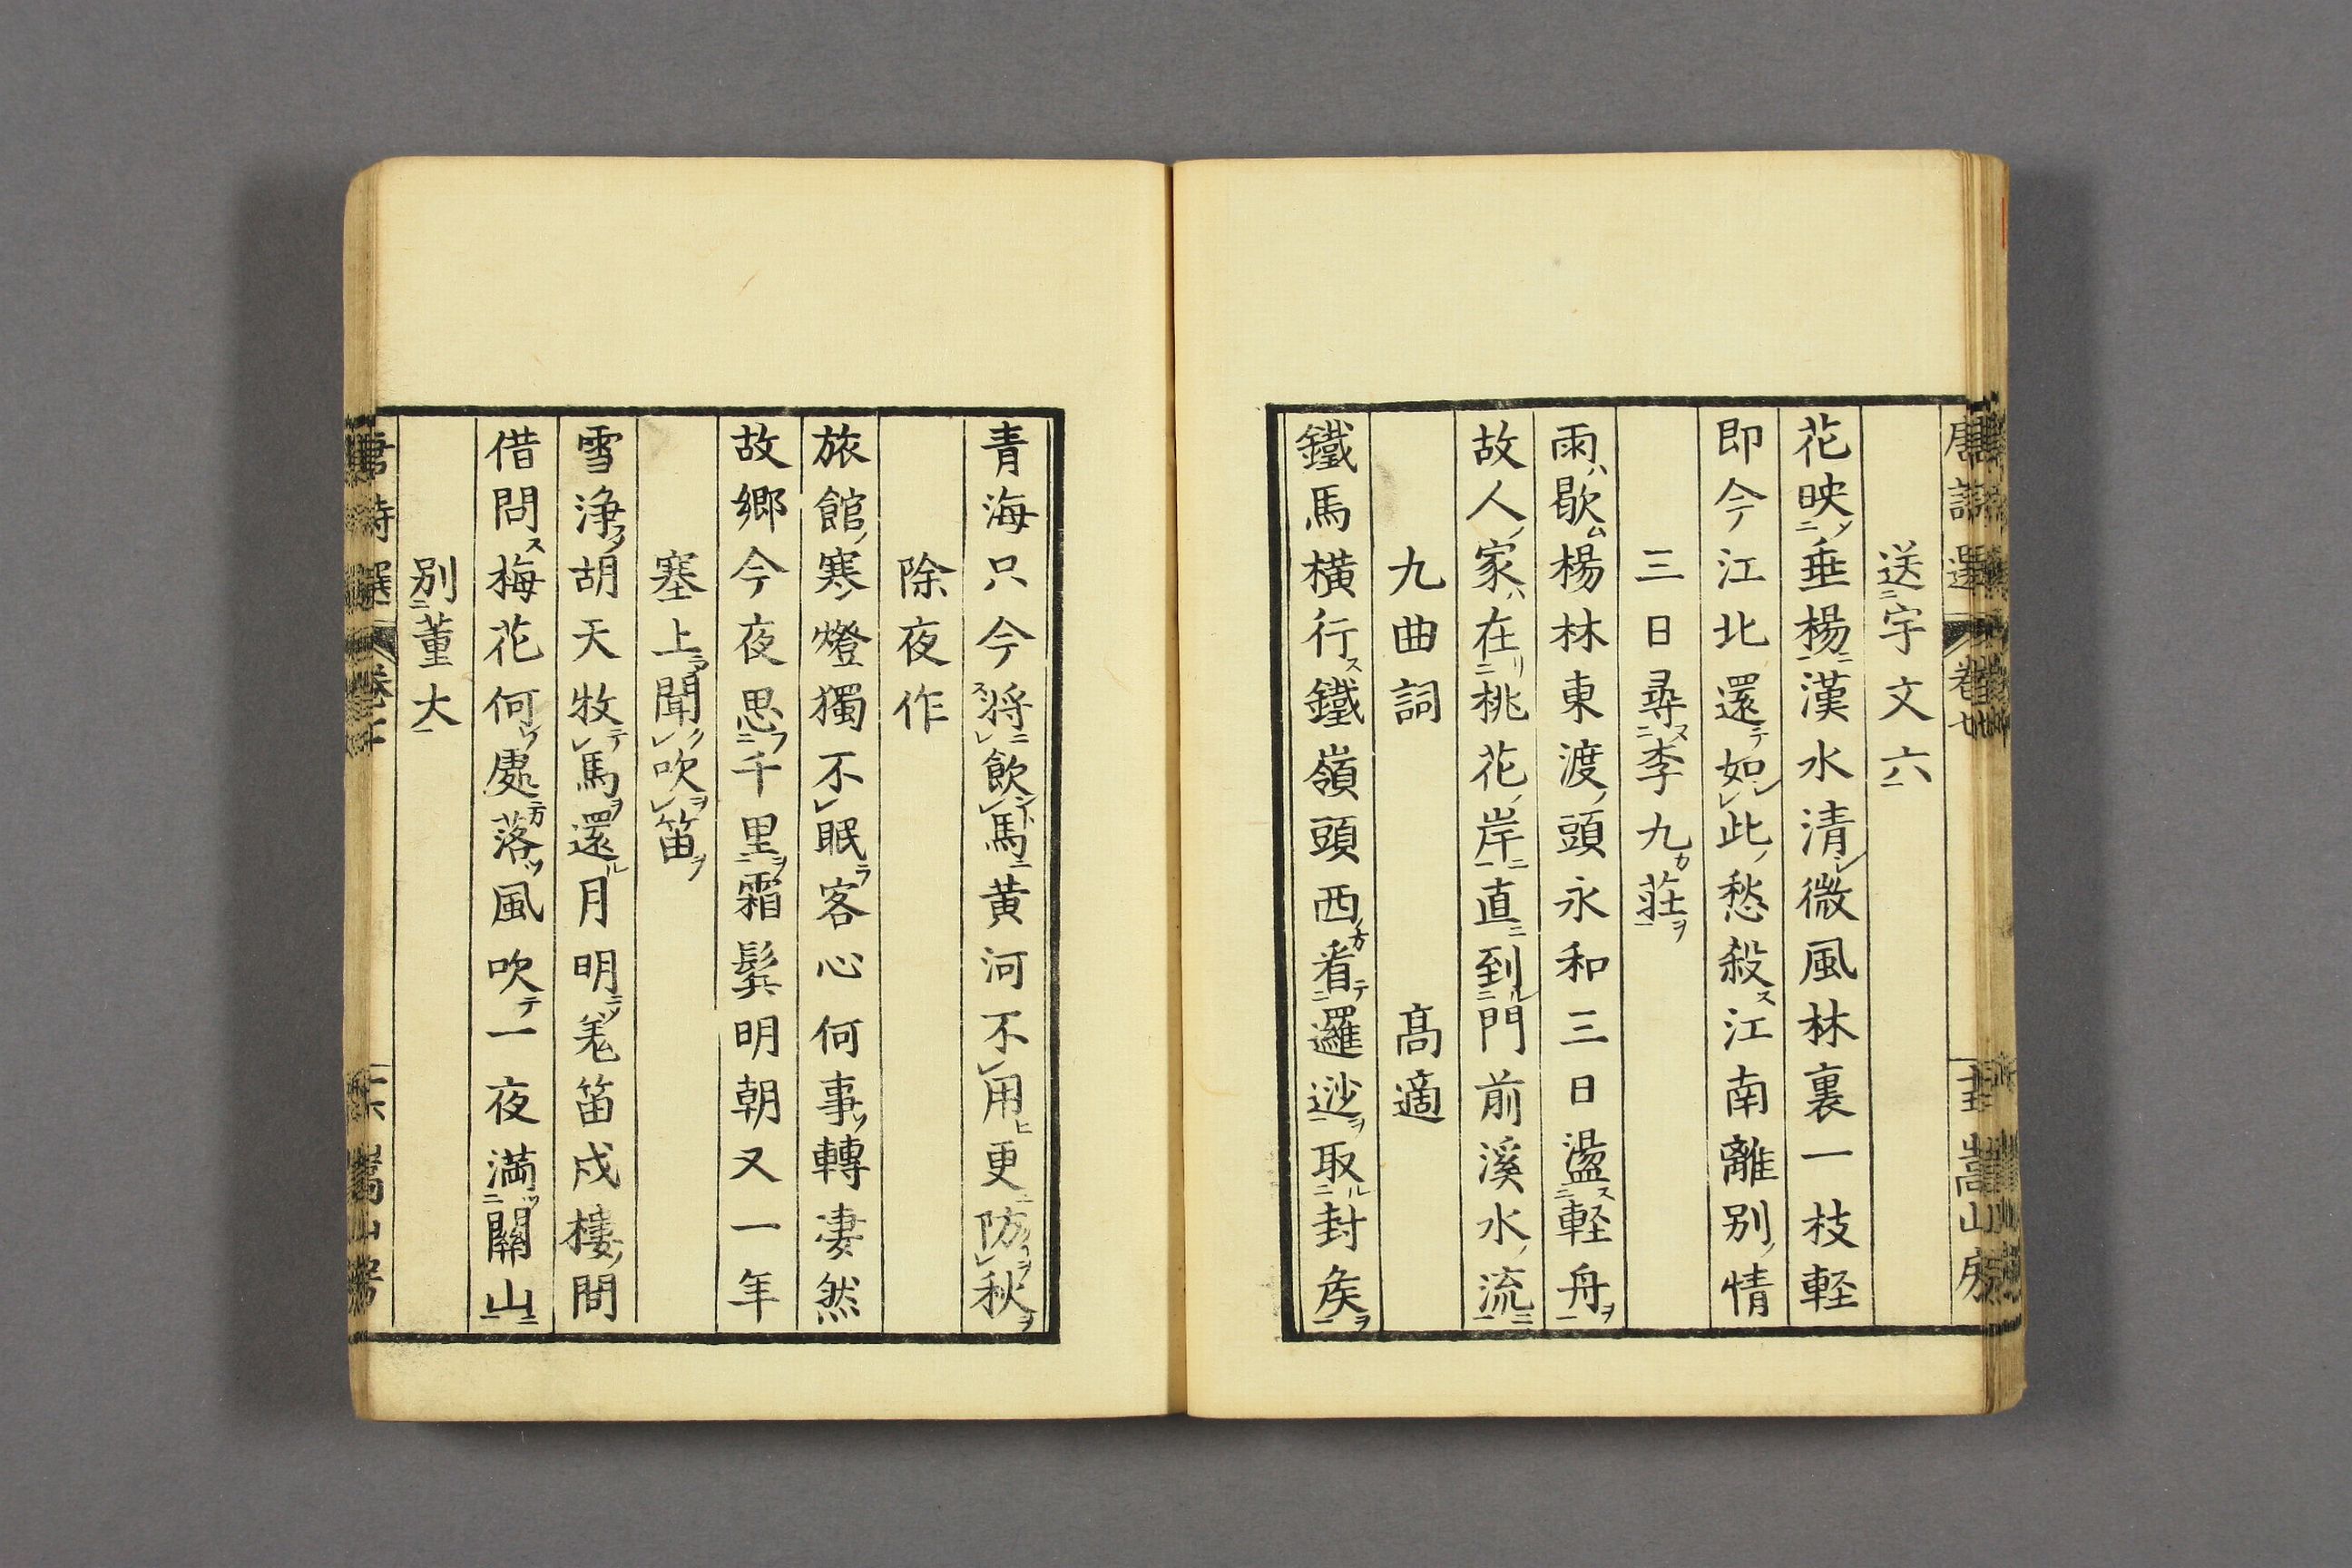 送宇文六
花映垂楊漢水清微風林裏一枝軽
即今江北還如此愁殺江南離別情
三日尋李九莊
雨歇楊林東渡頭永和三日盪軽舟
故人家在桃花岸直到門前溪水流
九曲詞 高適
鐵馬橫行鐵嶺頭西看邏逤取封矦
青海只今将飲馬黃河不用更防秋
除夜作
旅館寒燈獨不眠客心何事轉凄然
故鄉今夜思千里霜鬂明朝又一年
塞上聞吹笛
雪淨胡天牧馬還月明羌笛戍樓間
借問梅花何處落風吹一夜満關山
別董大
唐詩選 嵩山房